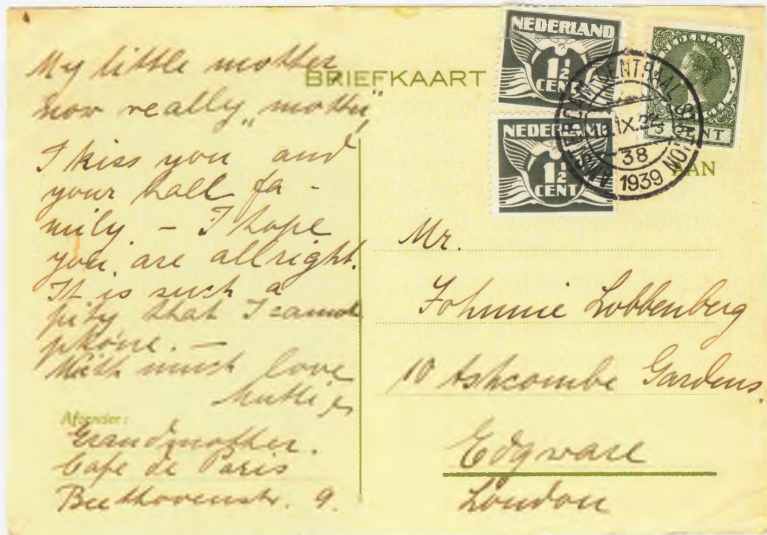 My little mother
BRIEFKAART
now really "mother"
I kiss you and
your hall fa-
mily - I hope
you are allright.
It is such a
pity that I cannot
phone. -
With much love
Afzender:
Grandmother.
Cafe de Paris
Beethovenstr. 9.
NEDERLAND
1½
CENT
NEDERLAND
1½
CENT
NEDERLAND
5 CENT
AMSTERDAM CENTRAAL STATION
IX
-38
1939
AAN
Mr.
Johnnie Lobbenberg
10 Ashcombe Gardens.
Edgware
London